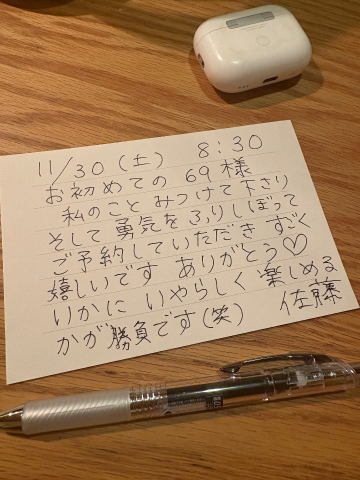 11/30(土) 8:30
お初めての 69様
私のこと みつけて下さり
そして 勇気を ふりしぼって
ご予約していただき すごく
嬉しいです ありがとう♡
いかに いやらしく 楽しめる
かが 勝負です(笑) 佐藤